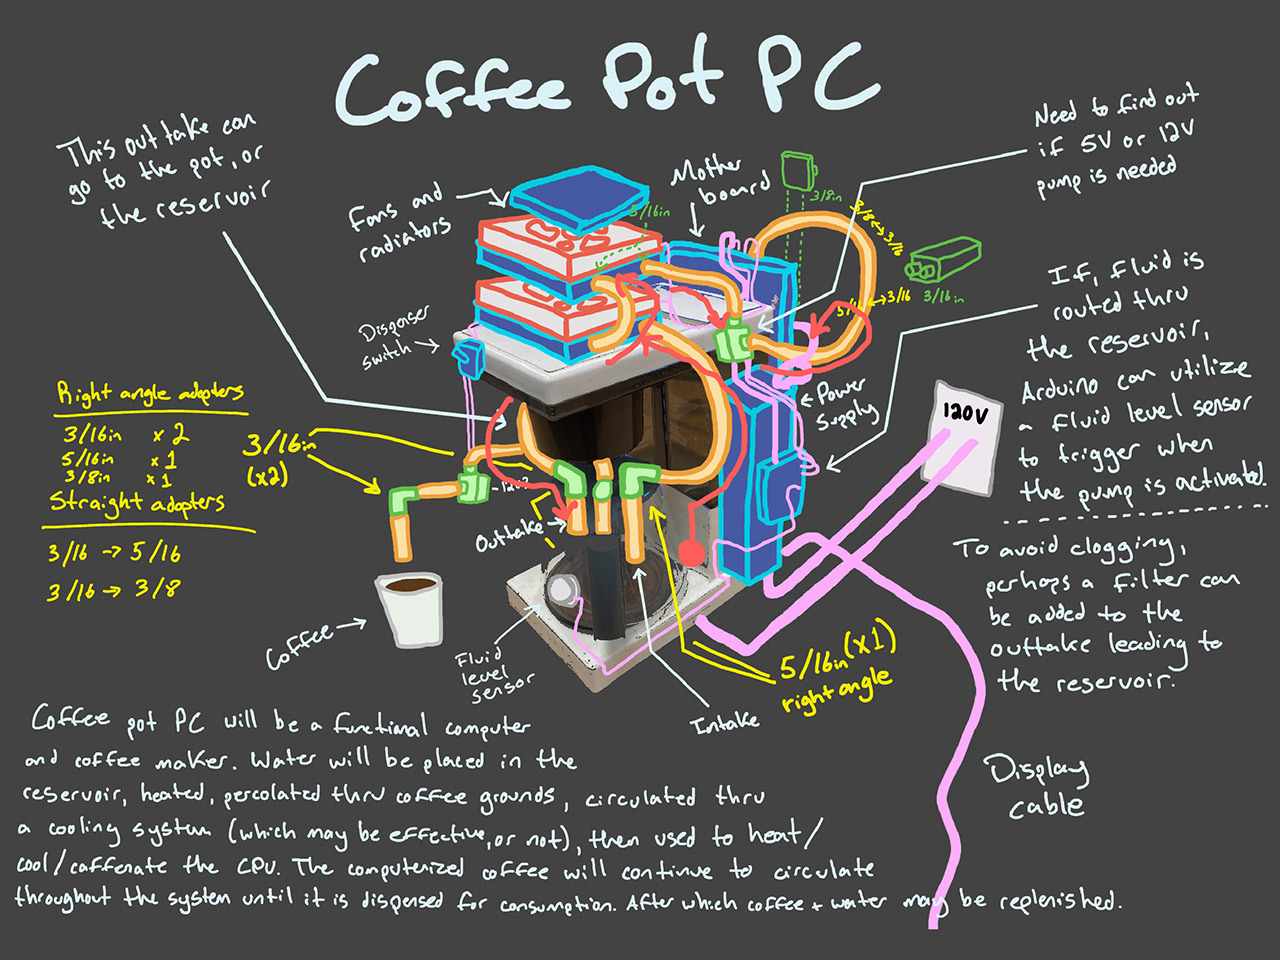 Coffee Pot PC
This out take can
go to the pot, or
the reservoir
Fans and
radiators
Mother
board
Need to find out
if 5V or 12V
pump is needed
5/16in
3/8in
3/8 ↔ 3/16
5/16 ↔ 3/16
3/16in
Dispenser
switch
If, fluid is
routed thru
the reservoir,
Arduino can utilize
a fluid level sensor
to trigger when
the pump is activated.
Power
Supply
120V
Right angle adapters
3/16in x2
5/16in x1
3/8in x1
Straight adapters
3/16 → 5/16
3/16 → 3/8
3/16in
(x2)
Outtake
Coffee
Fluid
level
sensor
Intake
5/16in (x1)
right angle
To avoid clogging,
perhaps a filter can
be added to the
outtake leading to
the reservoir.
Display
cable
Coffee pot PC will be a functional computer
and coffee maker. Water will be placed in the
reservoir, heated, percolated thru coffee grounds, circulated thru
a cooling system (which may be effective, or not), then used to heat/
cool/caffenate the CPU. The computerized coffee will continue to circulate
throughout the system until it is dispensed for consumption. After which coffee + water may be replenished.